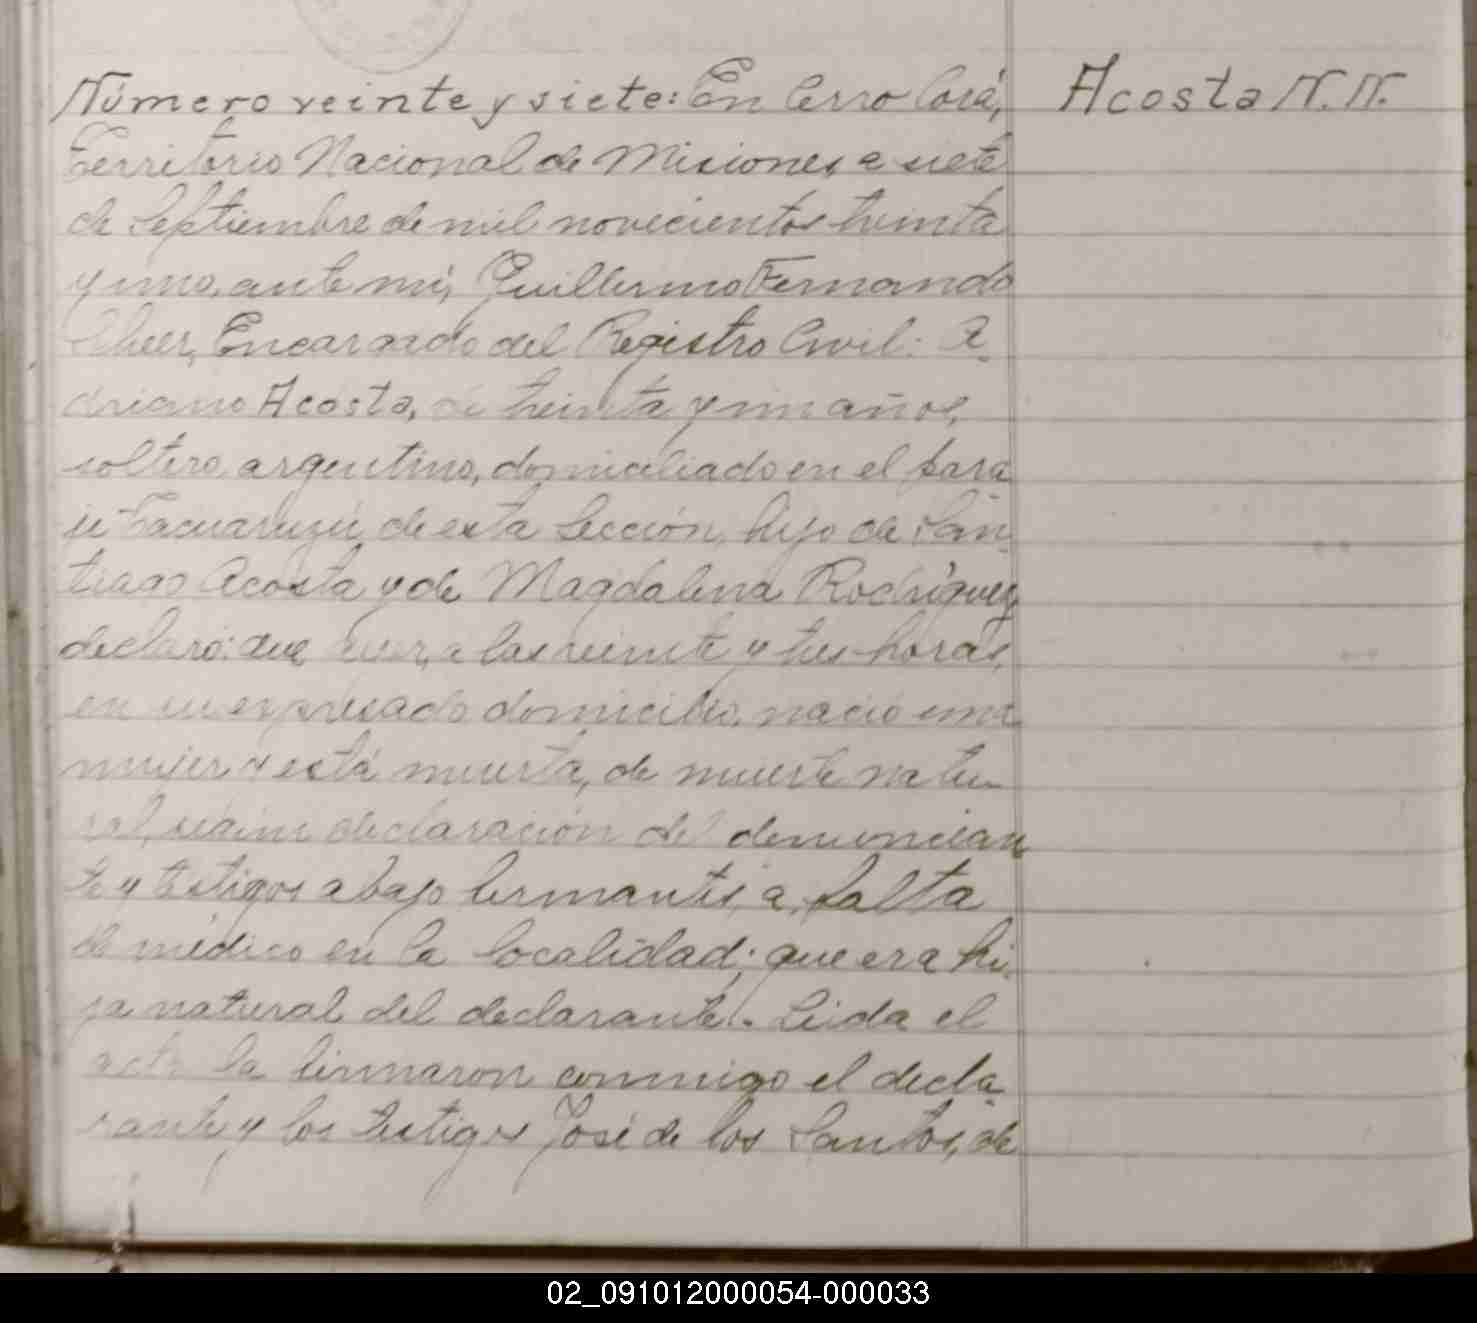 Número veinte y siete: En Cerro Corá,
Acosta N. N.
Territorio Nacional de Misiones, a siete
de Septiembre de mil novecientos treinta
y uno, ante mí, Guillermo Fernando
Encargado del Registro Civil: A-
driano Acosta, de treinta y un años,
soltero, argentino, domiciliado en el para
je Tacuaruzú de esta Sección, hijo de San-
tiago Acosta y de Magdalena Rodríguez
declaró: que ayer, a las veinte y tres horas,
en su expresado domicilio, nació una
mujer y está muerta, de muerte natu-
ral, según declaración del denuncian
te y testigos abajo firmantes, a falta
de médico en la localidad; que era hi-
ja natural del declarante. Leida el
acta la firmaron conmigo el decla-
rante y los testigos José de los Santos, de
02_091012000054-000033